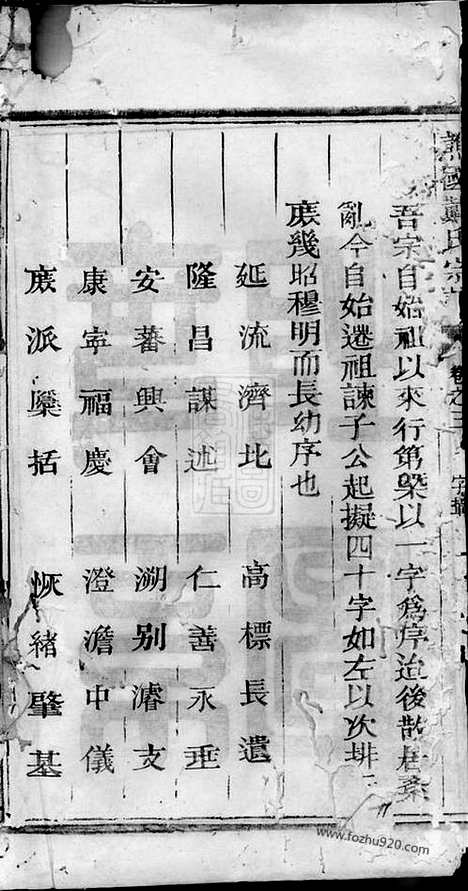 譙國戴氏宗
卷之三 字
吾宗自始祖以來行第槩以一字為序迨後散居
亂今自始遷祖諫子公起擬四十字如左以次排
庶幾昭穆明而長幼序也
延流濟北 高標長遺
隆昌謀述 仁善永垂
安蕃興會 溯別濬支
康寧福慶 澄澹中儀
庶派檃括 恢緒肇基
www.fozhu920.com